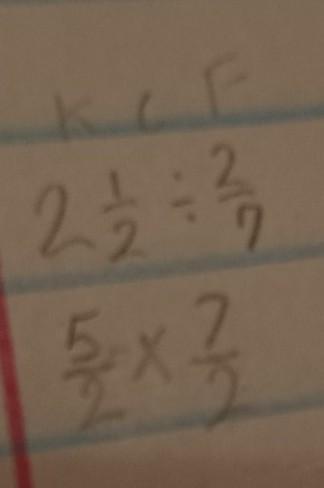 K C F
2 1/2 ÷ 2/7
5/2 × 7/2